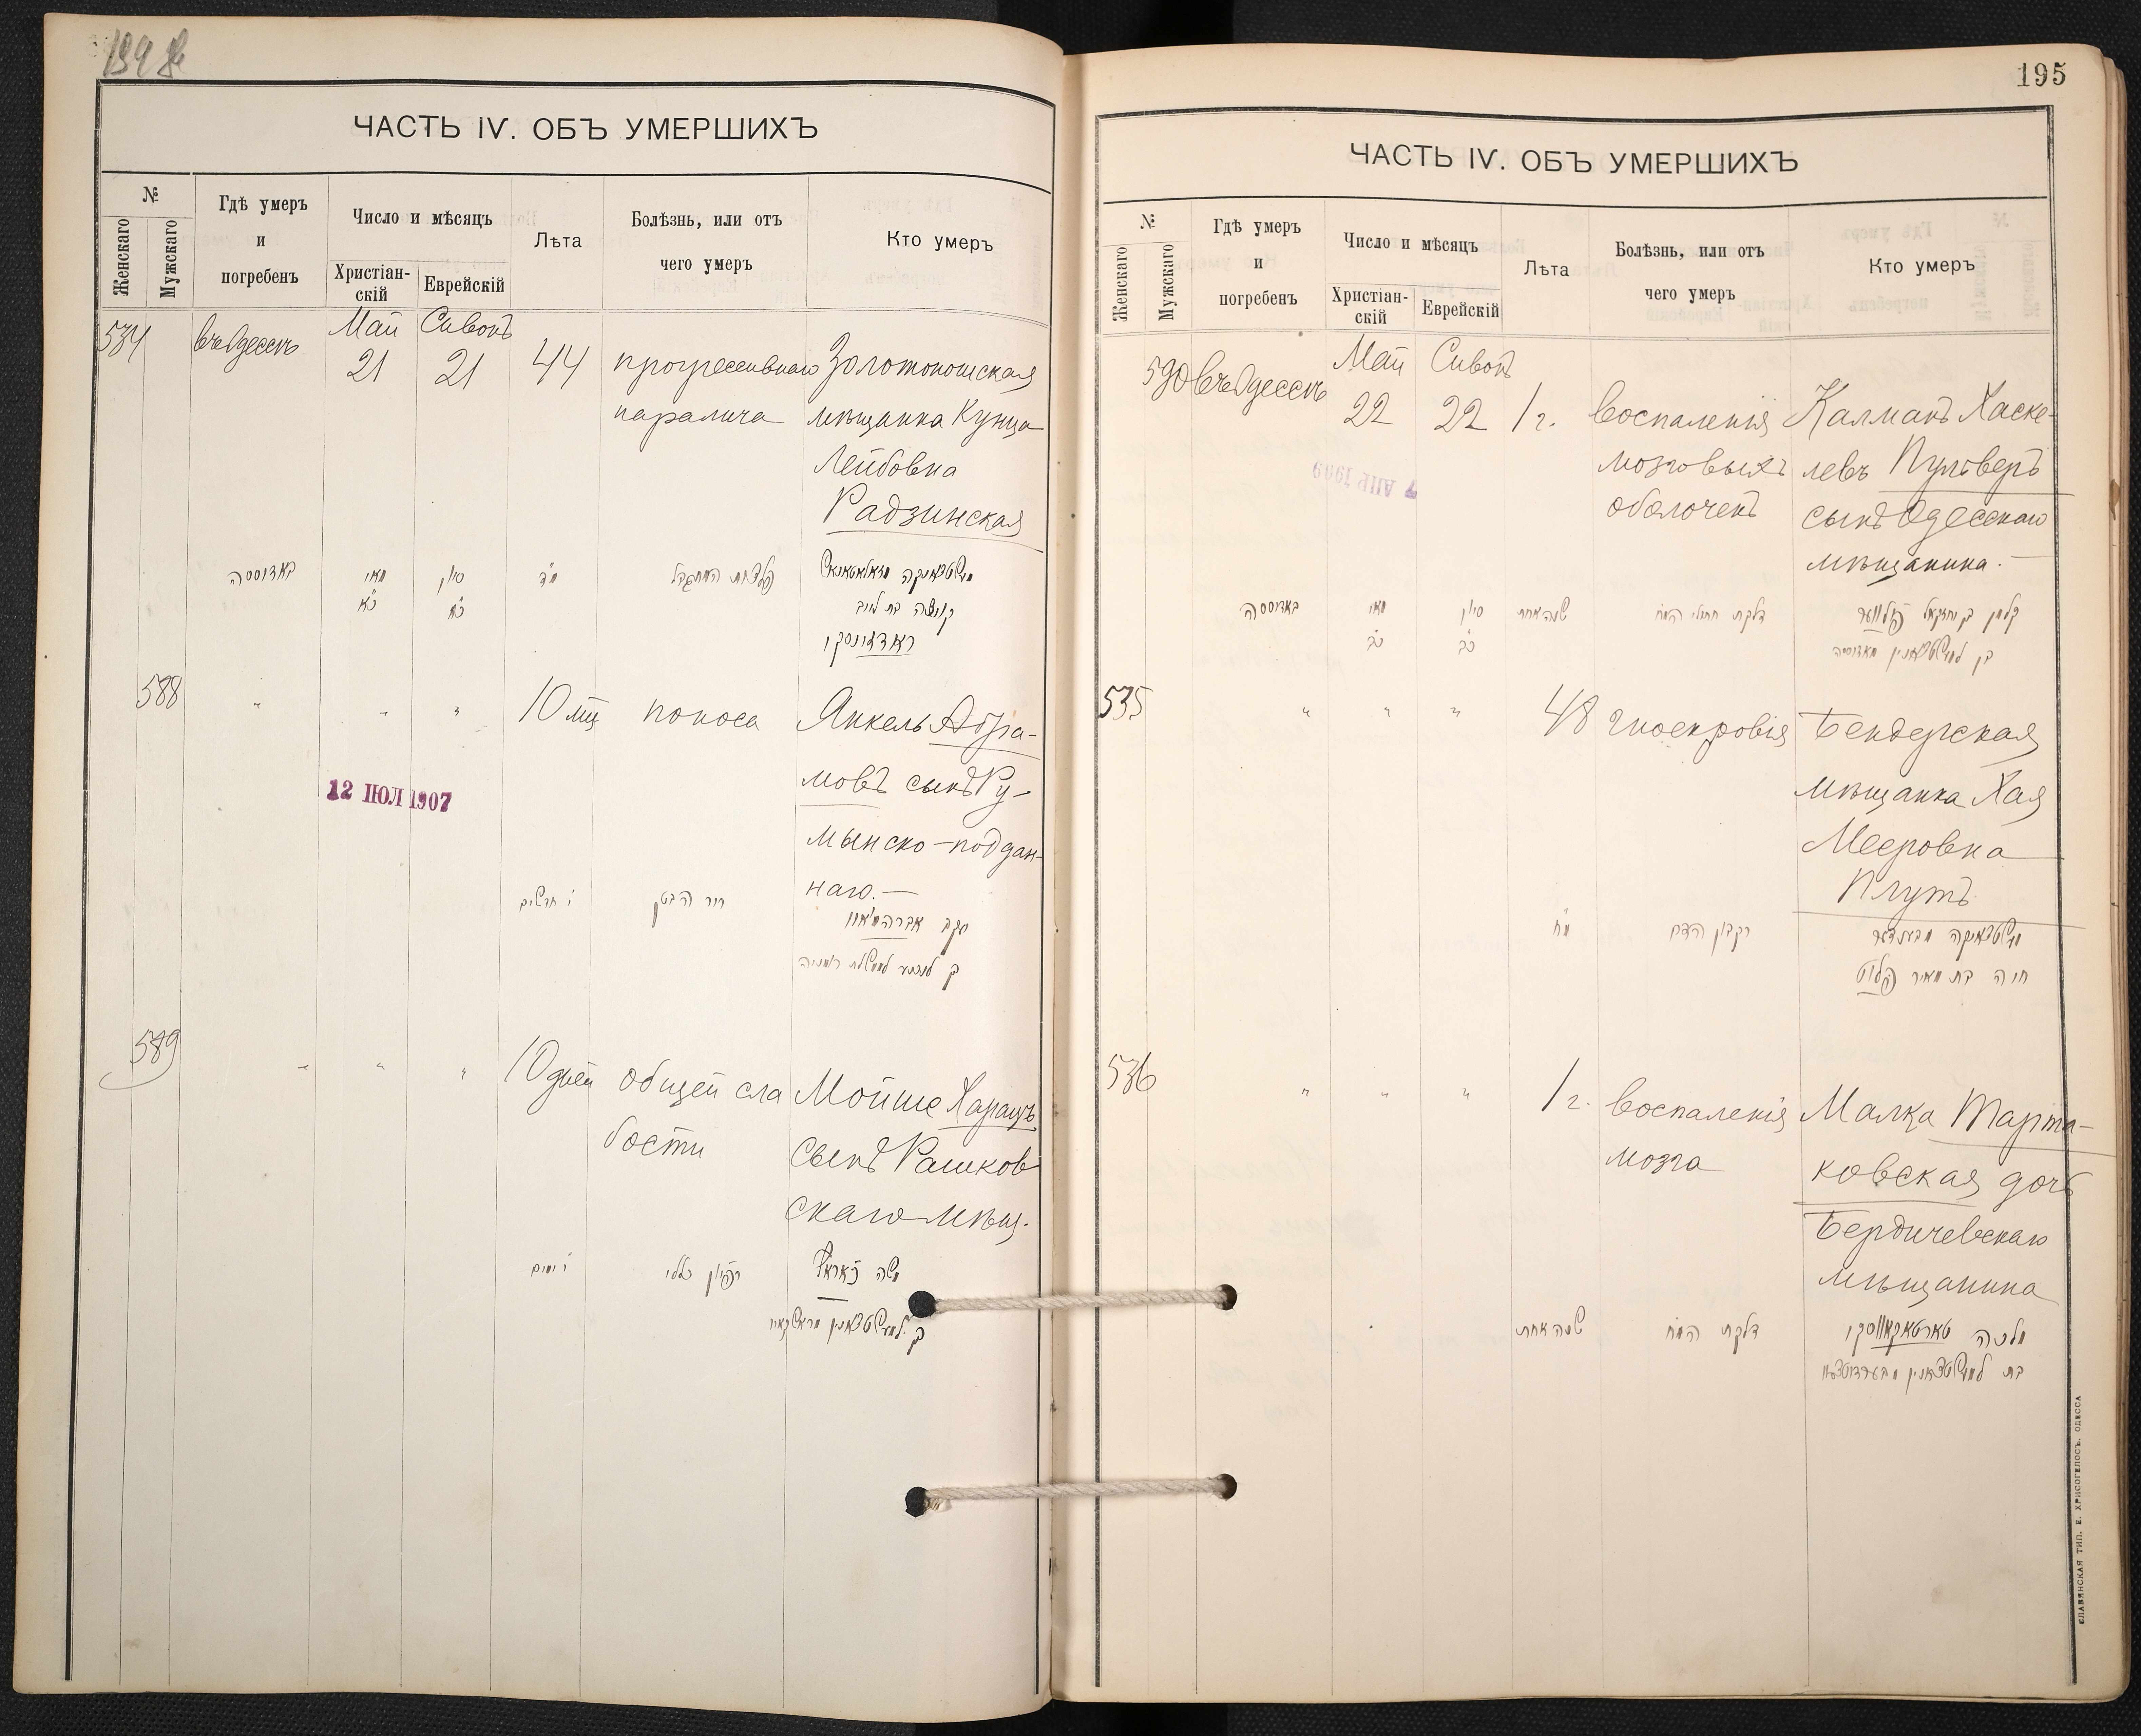 ЧАСТЬ IV. ОБЪ УМЕРШИХЪ
№
Женскаго
Мужскаго
Гдѣ умеръ
и
погребенъ
Число и мѣсяцъ
Христіан-
скій
Еврейскій
Лѣта
Болѣзнь, или отъ
чего умеръ
Кто умеръ
534
въ Одессѣ
Май
21
Сивонъ
21
44
прогрессивнаго
паралича
Золотоношская
мѣщанка Кунца
Лейбовна
Радзинская
באדוססה
מאי
כא
סיון
כא
מד
קונצה בת לייב
ראדזינסקי
588
"
"
"
10 мѣ
поноса
Янкель Абра-
мовъ сынъ Ру-
мынско-поддан-
наго.-
12 ІЮЛ 1907
י חדשים
יעקב
589
"
"
"
10 дней
общей сла
бости
Мойше Харацъ
сынъ Рашков
скаго мѣщ.
י ימים
רפיון כללי
משה
195
ЧАСТЬ IV. ОБЪ УМЕРШИХЪ
№
Женскаго
Мужскаго
Гдѣ умеръ
и
погребенъ
Число и мѣсяцъ
Христіан-
скій
Еврейскій
Лѣта
Болѣзнь, или отъ
чего умеръ
Кто умеръ
590
въ Одессѣ
Май
22
Сивонъ
22
1 г.
воспаленія
мозговыхъ
оболочекъ
Калманъ Хаске-
левъ Пульверъ
сынъ Одесскаго
мѣщанина.-
7 АПР 1909
באדוססה
מאי
כב
סיון
כב
שנה אחת
דלקת
קלמן בן יחזקאל פולווער
535
"
"
"
48
гноекровія
Бендерская
мѣщанка Хая
Мееровна
Плутъ
מח
רקבון הדם
חיה בת מאיר פלוט
536
"
"
"
1 г.
воспаленія
мозга
Малка Тарта-
ковская дочь
Бердичевскаго
мѣщанина
שנה אחת
דלקת המח
מלכה טארטאקאווסקי
СЛАВЯНСКАЯ ТИП. Е. ХРИСОГЕЛОСЪ. ОДЕССА